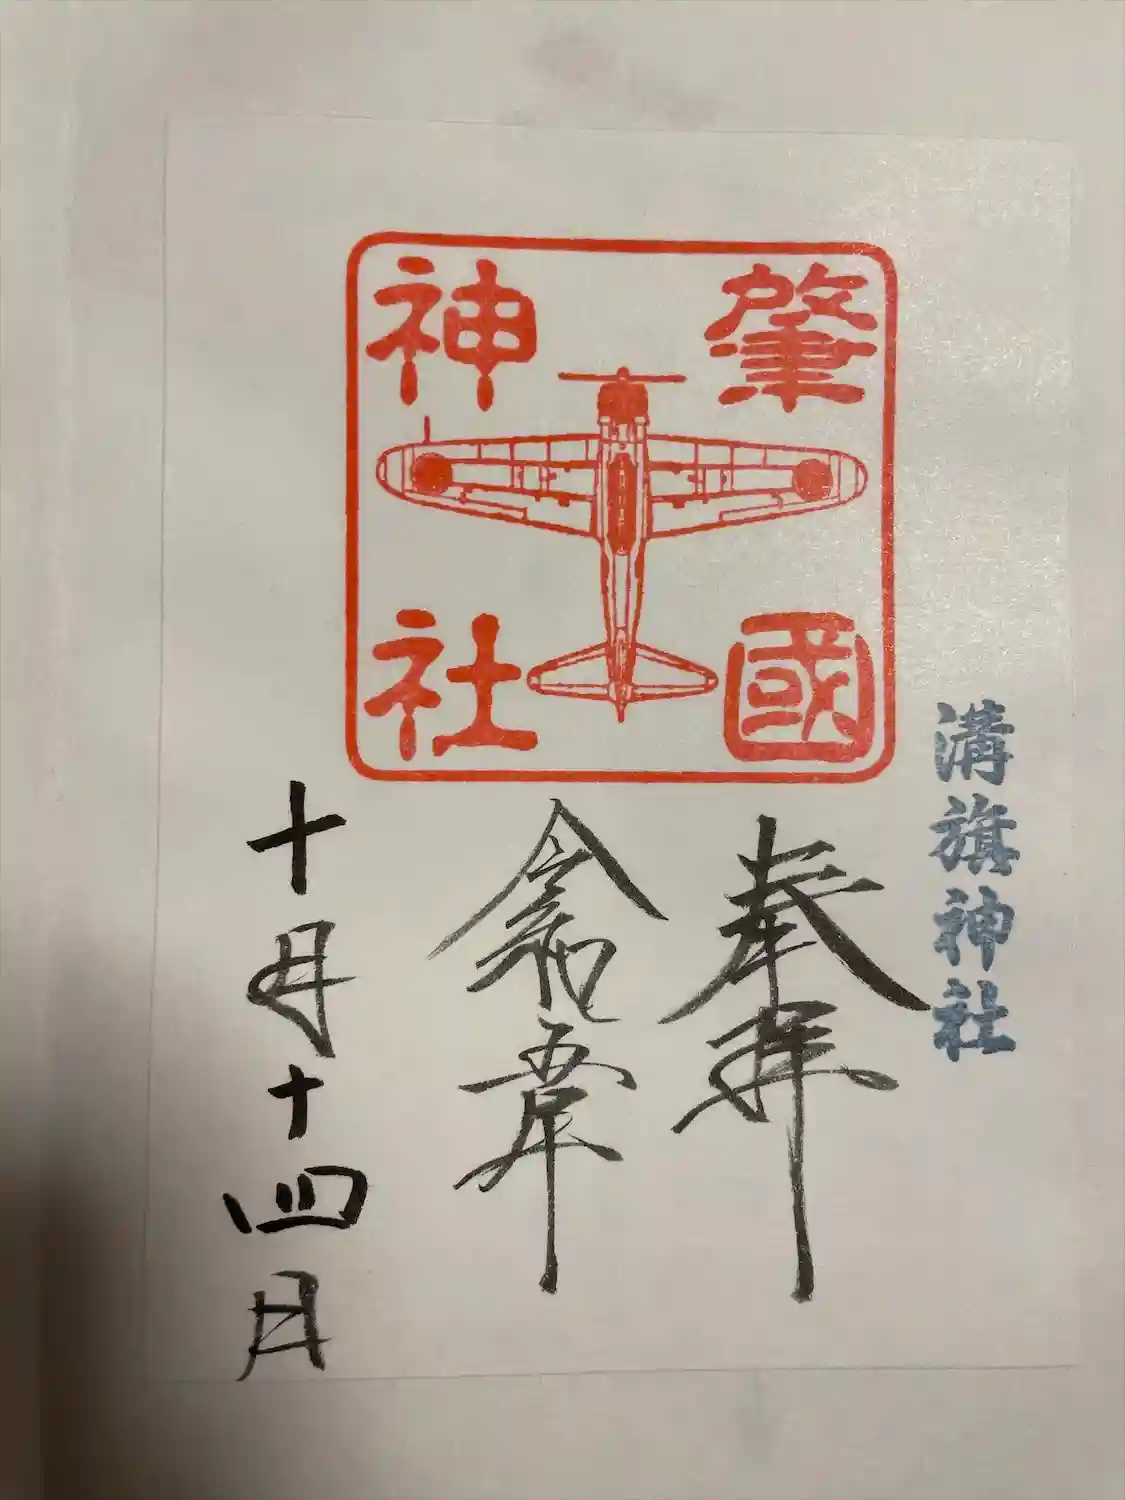 溝旗神社
肇國
神社
奉拝
令和五年
十月十四日